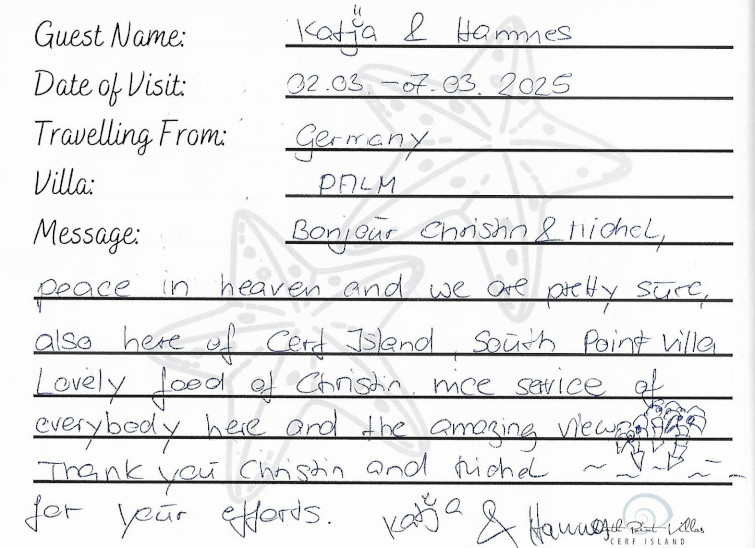 Guest Name: Katja & Hannes
Date of Visit: 02.03.-07.03.2025
Travelling From: Germany
Villa: PALM
Message: Bonjour Christin & Michel,
peace in heaven and we are pretty sure,
also here of Cerf Island, South Point Villa
Lovely food of Christin, nice service of
everybody here and the amazing view
Thank you Christin and Michel
for your efforts. Katja & Hannes
South Point Villas
CERF ISLAND